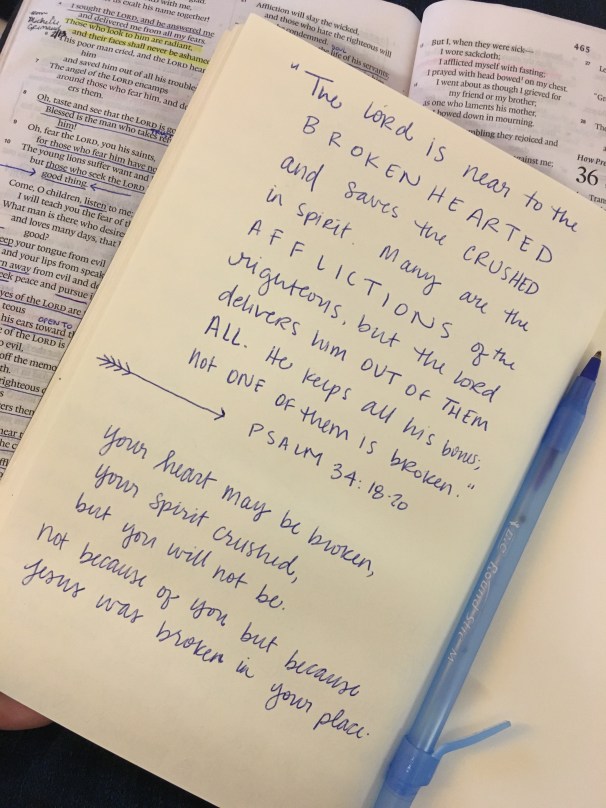 with me.
us exalt his name together!
I sought the LORD, and he answered me
and delivered me from all my fears.
Those who look to him are radiant,
and their faces shall never be ashamed
This poor man cried, and the LORD hear
him
and saved him out of all his trouble
7 The angel of the LORD encamps
around those who fear him, and de
ers them.
8 Oh, taste and see that the LORD is go
Blessed is the man who takes ref
him!
9 Oh, fear the LORD, you his saints,
for those who fear him have no
10 The young lions suffer want and
but those who seek the LORD
good thing.
Come, O children, listen to me;
I will teach you the fear of t
What man is there who desire
and loves many days, that
good?
eep your tongue from evil
and your lips from speak
n away from evil and do
eek peace and pursue i
yes of the LORD are
teous
his ears toward t
OPEN TO
e of the LORD is
o evil,
off the memo
th.
righteous
s
ers then
near t
he c
Affliction will slay the wicked,
and those who hate the righteous will
condemned.
the life of his servants
465
But I, when they were sick—
I wore sackcloth;
I afflicted myself with fasting;
I prayed with head bowed on my chest.
I went about as though I grieved for
my friend or my brother;
as one who laments his mother,
I bowed down in mourning.
mbling they rejoiced and
ainst me;
How Pre
36
"The Lord is near to the
BROKENHEARTED
and saves the CRUSHED
in spirit. Many are the
AFFLICTIONS of the
righteous, but the Lord
delivers him OUT OF THEM
ALL. He keeps all his bones;
not ONE OF them IS broken."
PSALM 34:18-20
your heart may be broken,
your spirit crushed,
but you will not be.
not because of you but because
Jesus was broken in your place.